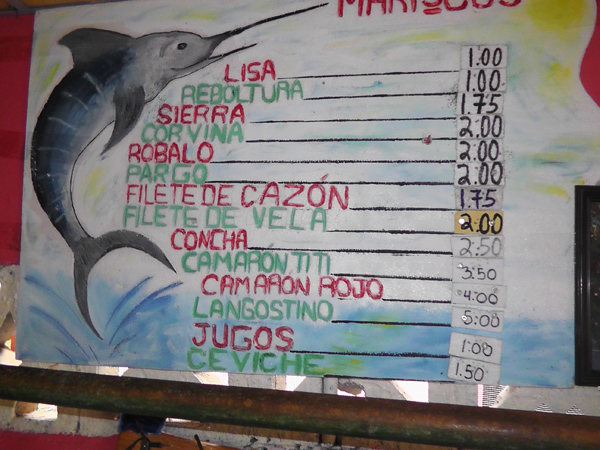 MARISCOS
LISA 1.00
REBOLTURA 1.00
SIERRA 1.75
CORVINA 2.00
ROBALO 2.00
PARGO 2.00
FILETE DE CAZÓN 1.75
FILETE DE VELA 2.00
CONCHA 2.50
CAMARÓN TITI 3.50
CAMARON ROJO 4.00
LANGOSTINO 5.00
JUGOS 1.00
CEVICHE 1.50